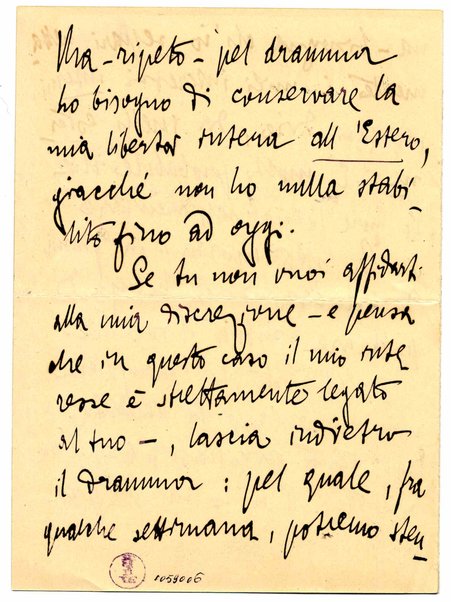 Ma - ripeto - pel dramma
ho bisogno di conservare la
mia libertà intera all'Estero,
giacché non ho nulla stabi-
lito fino ad oggi.
Se tu non vuoi affidarti
alla mia discrezione - e pensa
che in questo caso il mio inte
resse è strettamente legato
al tuo -, lascia indietro
il dramma: pel quale, fra
qualche settimana, potremo sten-
1059006